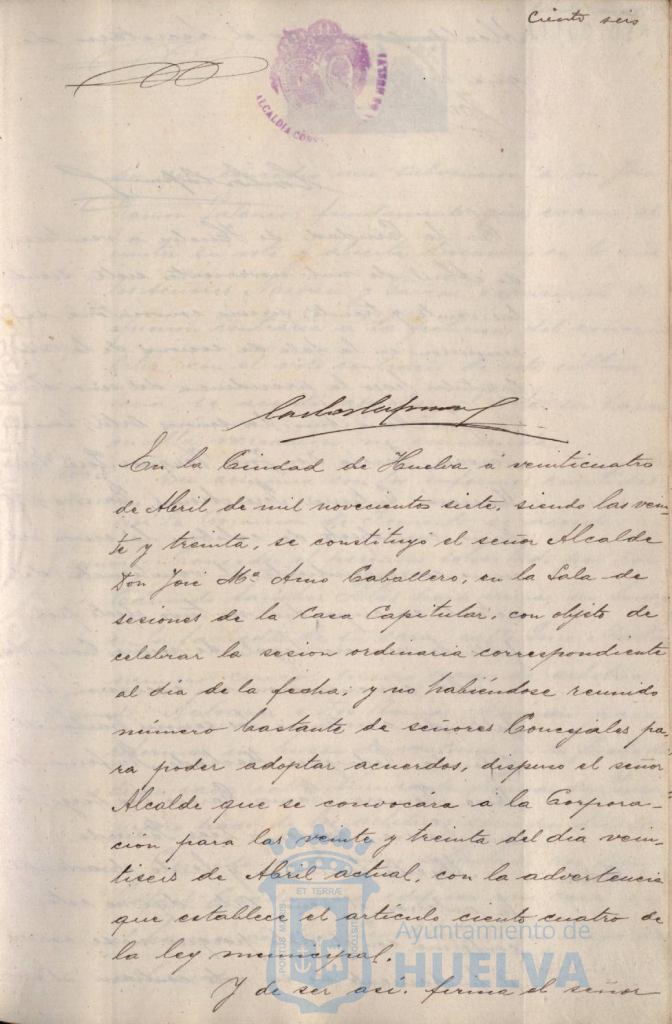 Ciento seis
ALCALDIA CONS DE HUELVA
En la Ciudad de Huelva á veinticuatro
de Abril de mil novecientos siete, siendo las vein-
te y treinta, se constituyó el señor Alcalde
Don José Mª Amo Caballero, en la Sala de
sesiones de la Casa Capitular, con objeto de
celebrar la sesion ordinaria correspondiente
al dia de la fecha; y no habiéndose reunido
número bastante de señores Concejales pa-
ra poder adoptar acuerdos, dispuso el señor
Alcalde que se convocára á la Corpora-
ción para las veinte y treinta del dia vein-
tiseis de Abril actual, con la advertencia
que establece el artículo ciento cuatro de
la ley municipal.
Y de ser asi, firma el señor
PORTUS MARIS ET TERRÆ CUSTODIA
Ayuntamiento de
HUELVA